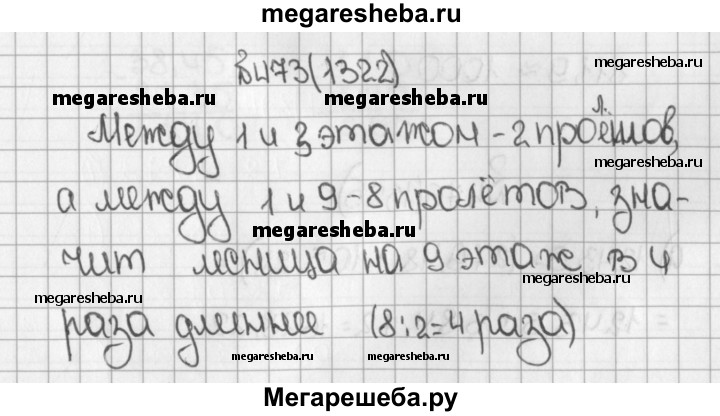 megaresheba.ru
№473(1322)
megaresheba.ru
megaresheba.ru
megaresheba.ru
Между 1 и 3 этажом – 2 пролётов,
megaresheba.ru
а между 1 и 9 – 8 пролётов, зна-
megaresheba.ru
чит лесница на 9 этаж в 4
megaresheba.ru
megaresheba.ru
раза длиннее (8:2=4 раза)
megaresheba.ru
megaresheba.ru
Мегарешеба.ру